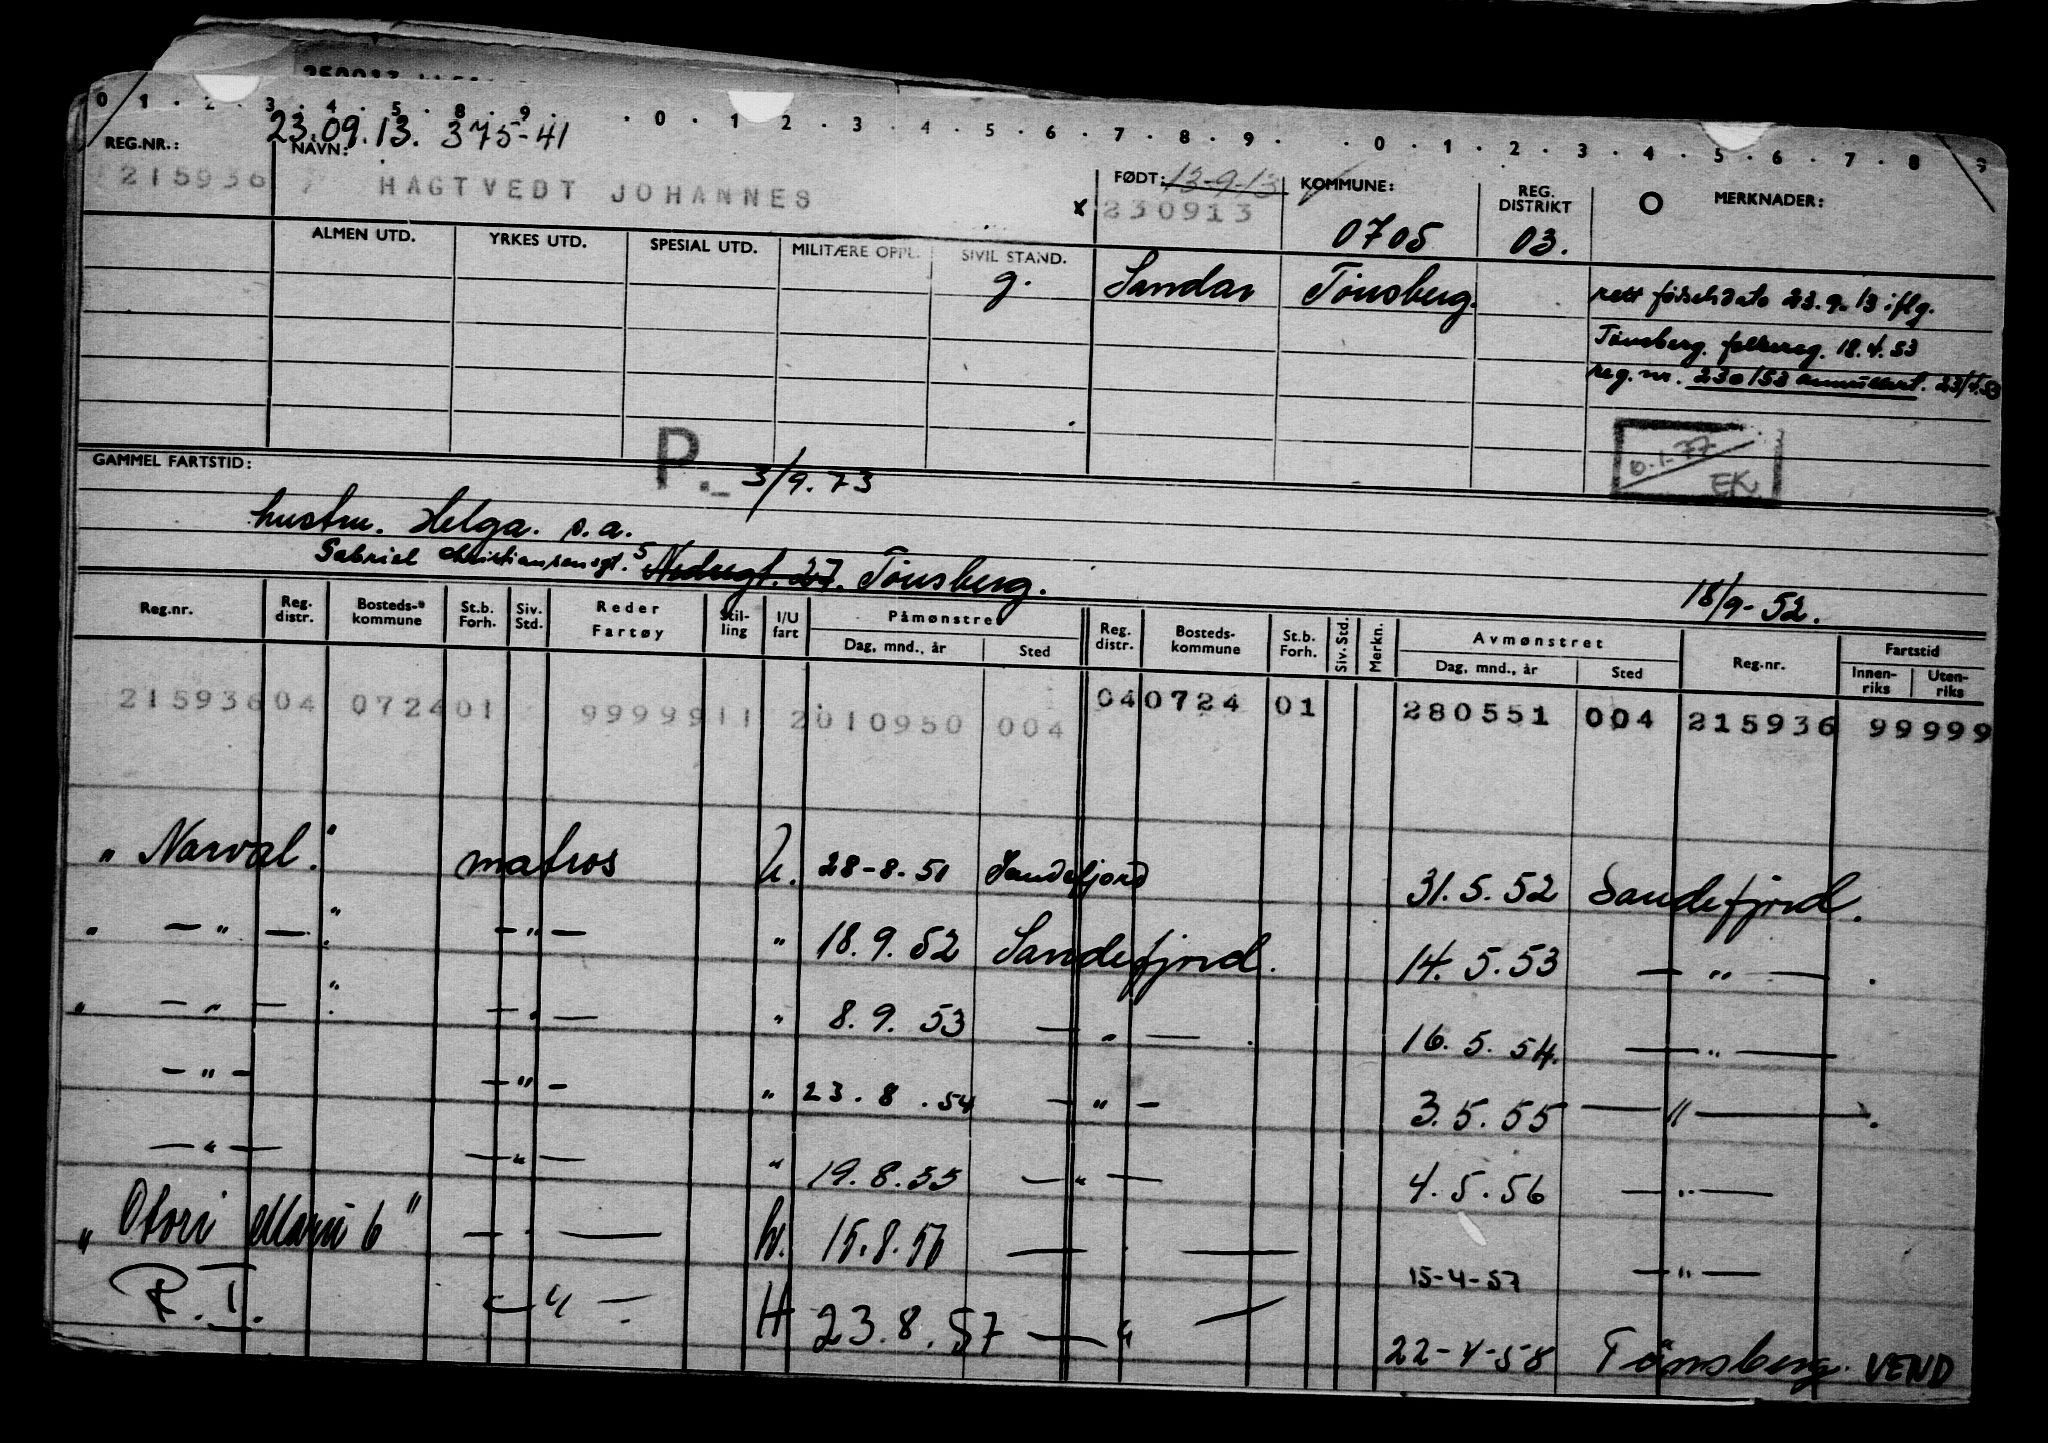 0 1 . 2 . 3 . 4 . 5 . 8 . 9 . . 0 . 1 . 2 . 3 . 4 . 5 . 6 . 7 . 8 . 9 . . 0 . 1 . 2 . 3 . 4 . 5 . 6 . 7 . 8 . 9
23.09.13. 375-41
REG.NR.: NAVN: FØDT: 13-9-13 KOMMUNE: REG. DISTRIKT MERKNADER:
215936 HAGTVEDT JOHANNES x 230913 0705 03.
ALMEN UTD. YRKES UTD. SPESIAL UTD. MILITÆRE OPPL. SIVIL STAND.
g. Sandar Tönsberg.
rett fødselsdato 23.9.13 iflg.
Tönsberg. folkereg. 18.4.53
reg. nr. 230153 annullert. 23/4.53
10.1.77
EK
GAMMEL FARTSTID: P. 3/9.73
hustru. Helga. s.a.
Gabriel Christiansensgt. 5 Nedregt. 27. Tönsberg.
18/9-52.
Reg.nr. Reg. distr. Bosteds-kommune St.b. Forh. Siv. Std. Reder Fartøy Stil-ling I/U fart Påmønstret Dag, mnd., år Sted Reg. distr. Bosteds-kommune St.b. Forh. Siv. Std. Merkn. Avmønstret Dag, mnd., år Sted Reg.nr. Fartstid Innen-riks Uten-riks
215936 04 0724 01 9999911 2010950 004 04 0724 01 280551 004 215936 99999
"Narval." matros U. 28-8.51 Sandefjord 31.5.52 Sandefjord.
" — " — " — " — " 18.9.52 Sandefjord. 14.5.53 — " — .
" — " — " — " — " 8.9.53 — " — . 16.5.54. — " —
— " — — " — " 23.8.54 — " — 3.5.55 — " — .
— " — — " — " 19.8.55 — " — 4.5.56 — " —
"Otori Maru 6" — " — 15.8.56 — " — 15-4-57 — " —
R.I. — " — H 23.8.57 — " — 22-4-58 Tönsberg. VEND